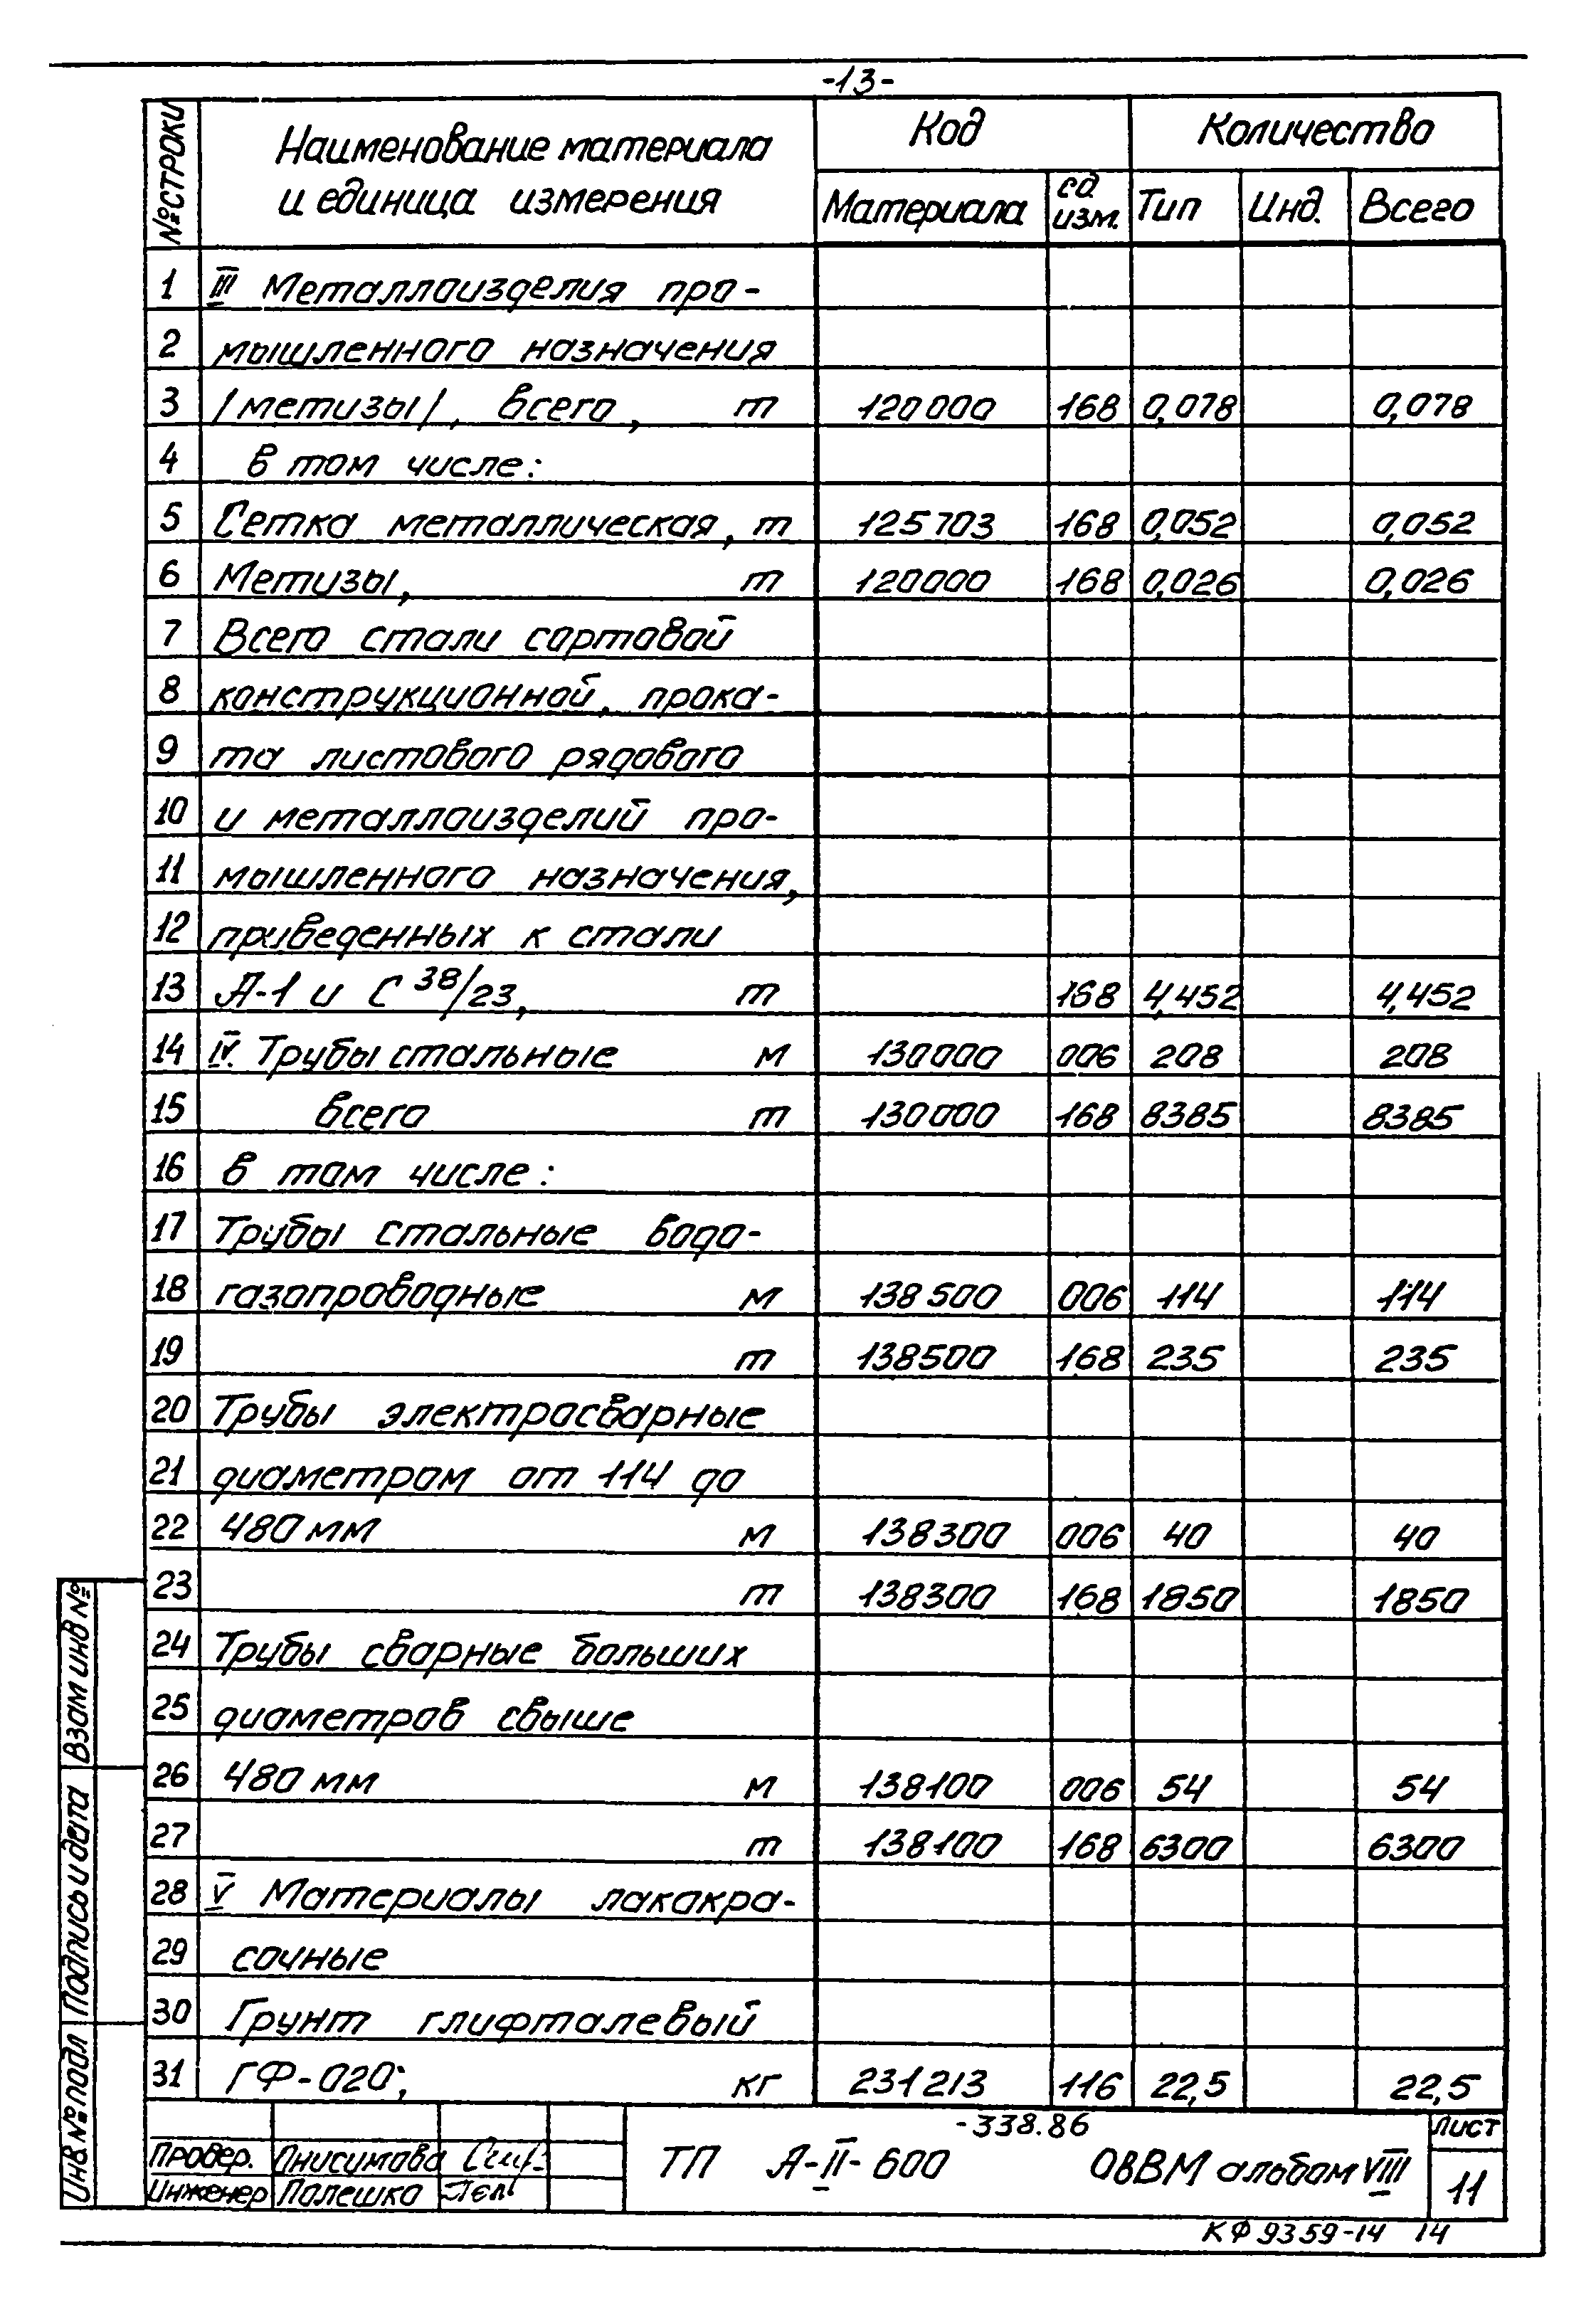 -13-
№ СТРОКИ Наименование материала и единица измерения Код Количество
Материала ед. изм. Тип Инд. Всего
1 III Металлоизделия про-
2 мышленного назначения
3 /метизы/, всего, т 120000 168 0,078 0,078
4 в том числе:
5 Сетка металлическая, т 125703 168 0,052 0,052
6 Метизы, т 120000 168 0,026 0,026
7 Всего стали сортовой
8 конструкционной, прока-
9 та листового рядового
10 и металлоизделий про-
11 мышленного назначения,
12 приведенных к стали
13 А-1 и С 38/23, т 168 4,452 4,452
14 IV. Трубы стальные м 130000 006 208 208
15 всего т 130000 168 8385 8385
16 в том числе:
17 Трубы стальные водо-
18 газопроводные м 138500 006 114 114
19 т 138500 168 235 235
20 Трубы электросварные
21 диаметром от 114 до
22 480 мм м 138300 006 40 40
23 т 138300 168 1850 1850
24 Трубы сварные больших
25 диаметров свыше
26 480 мм м 138100 006 54 54
27 т 138100 168 6300 6300
28 V Материалы лакокра-
29 сочные
30 Грунт глифталевый
31 ГФ-020; кг 231213 116 22,5 22,5
Взам инв №
Подпись и дата
Инв № подл
Провер. Анисимова
Инженер Палешко
-338.86
ТП А-II-600 ОвВМ альбом VIII
Лист
11
КФ 9359-14 14